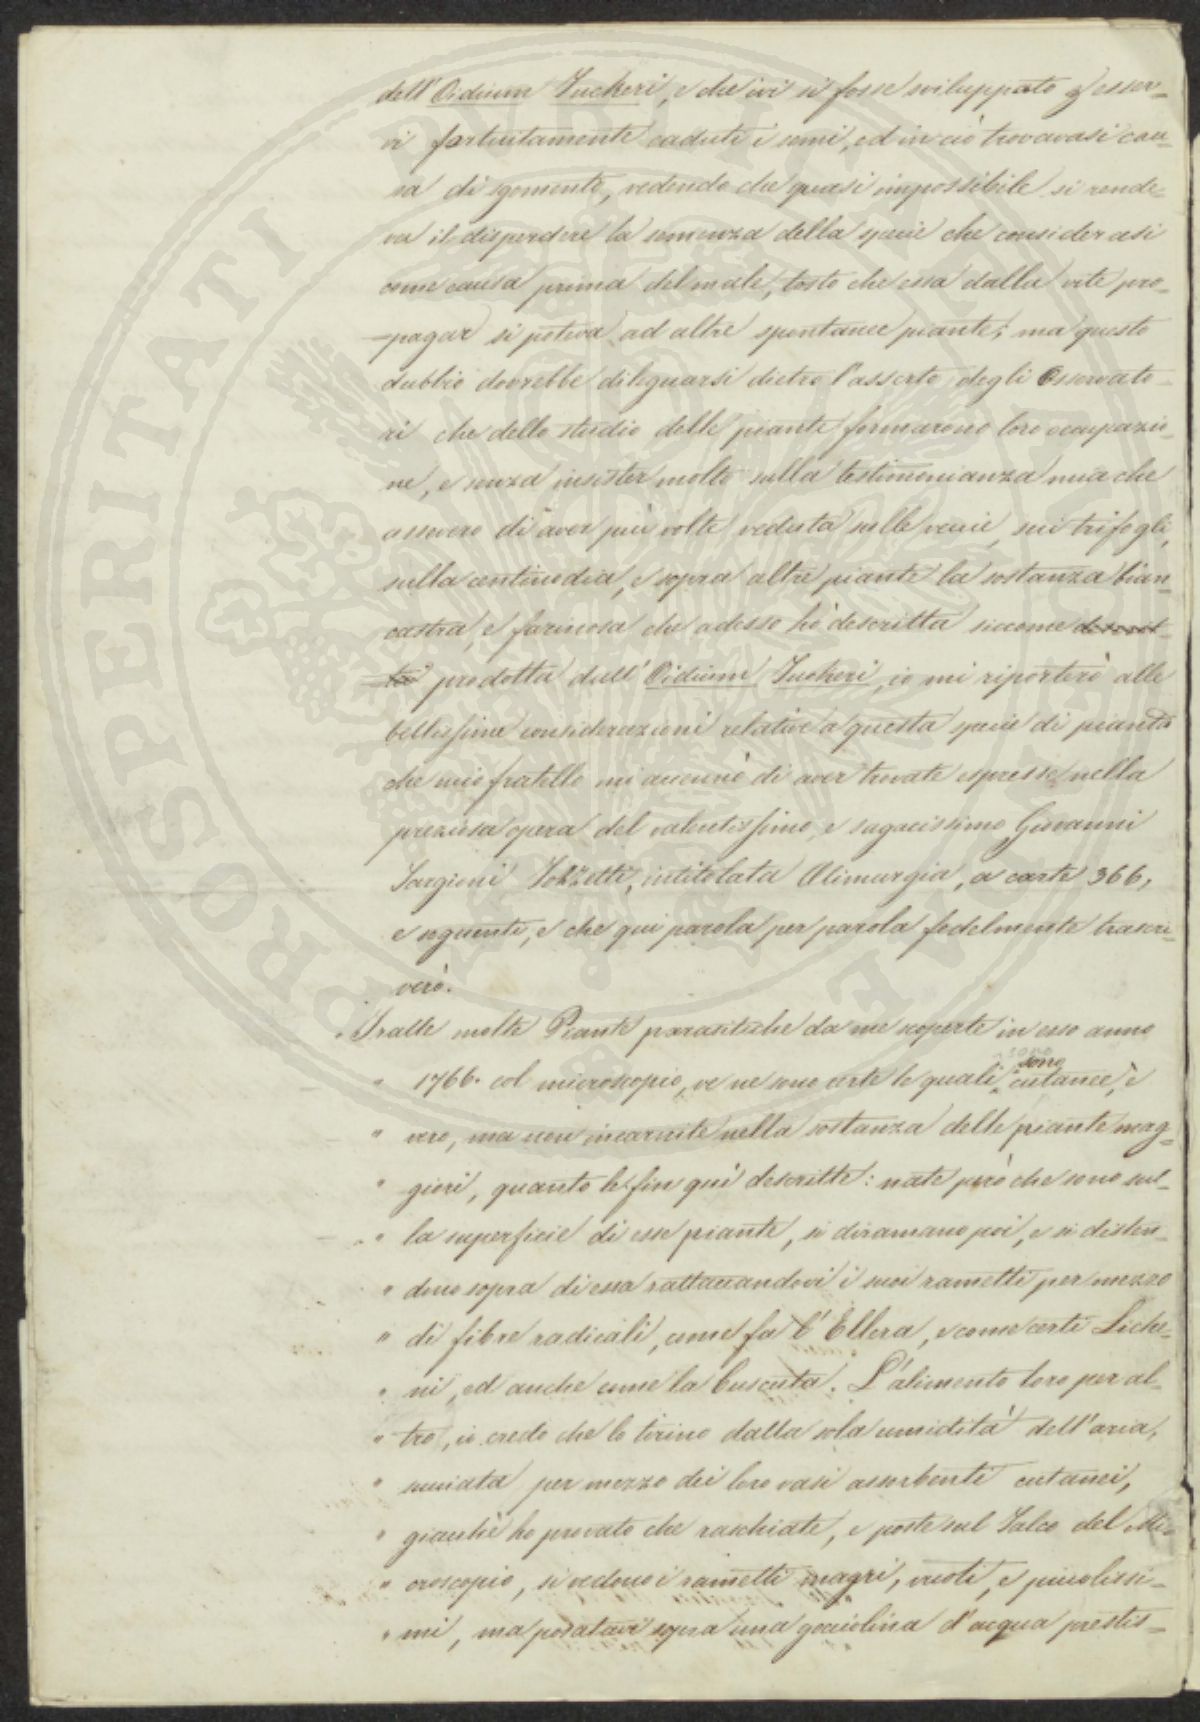 dell'Oidium Tuckeri, e che ivi si fosse sviluppato p esser-
vi fortuitamente caduti i semi, ed in ciò trovavasi cau-
sa di sgomento, vedendo che quasi impossibile si rende-
va il disperdere la semenza della specie che considerasi
come causa prima del male, tosto che essa dalla vite pro-
-pagar si poteva ad altre spontanee piante; ma questo
dubbio dovrebbe dileguarsi dietro l'asserto degli Osservato-
ri che dello studio delle piante formarono loro occupazio-
ne, e senza insister molto sulla testimonianza mia che
assevero di aver più volte veduta sulle vecie, sui trifogli,
sulla centinodia, e sopra altre piante la sostanza bian-
castra, e farinosa che adesso hò descritta siccome
prodotta dall'Oidium Tuckeri, io mi riporterò alle
bellissime considerazioni relative a questa specie di pianta
che mio fratello mi accennò di aver trovate espresse nella
preziosa opera del valentissimo, e sagacissimo Giovanni
Targioni Tozzetti, intitolata Alimurgia, a carte 366,
e seguente, e che qui parola per parola fedelmente trascri-
verò.
"Tralle molte Piante parasitiche da me scoperte in esso anno
" 1766. col microscopio, ve ne sono certe le quali sono cutanee, è
" vero, ma non incarnite nella sostanza delle piante mag-
" giori, quanto le fin quì descritte: nate però che sono sul-
" la superficie di esse piante, si diramano poi, e si disten-
" dono sopra di essa rattaccandovi i suoi rametti per mezzo
" di fibre radicali, come fa l'Ellera, e come certi Liche-
" ni, ed anche come la Cuscuta. L'alimento loro per al-
" tro, io credo che lo tirino dalla sola umidità dell'aria,
" succiata per mezzo dei loro vasi assorbenti cutanei,
" giacchè ho provato che raschiate, e poste sul Talco del Mi-
" croscopio, si vedono i rametti magri, vuoti, e piccolissi-
" mi, ma posatavi sopra una gocciolina d'acqua prestis-